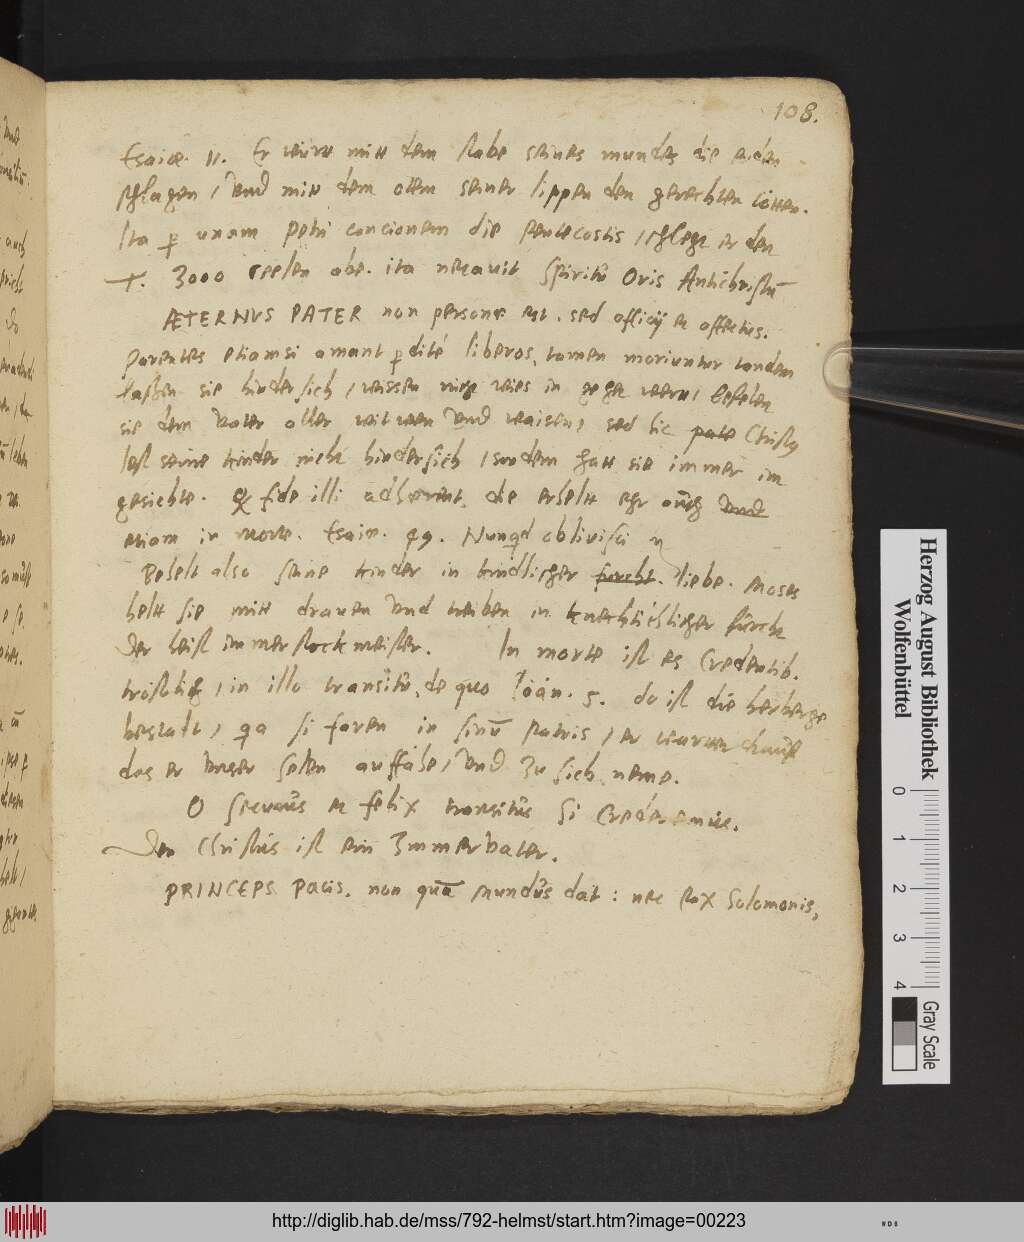 108.
Esaiæ. 11. Er wirtt mitt dem stabe seines mundes die erden
schlagen, Vnd mitt dem otem seiner lippen den gerechten tötten.
Ita p unam Petri concionem die pentecostis, schlegt er den
T. 3000 seelen abe. ita necauit spiritu Oris Antichristū
ÆTERNVS PATER non personæ est. sed officij et affectus.
Parentes etiamsi amant pdite liberos, tamen moriuntur tandem
laßen sie hindersich, wissen nicht wies in gehet, befelen
sie dem Vater aller witwen Vnd waisen, sed hic Christus
lest seine kinder nicht hindersich, sondern hatt sie immer im
gesichte. fide illi adhærent, die erhelt ehr auch Vnd
etiam in morte. Esaiæ. 49. Nunqd obliuisci
Behelt also seine kinder in kindlicher furcht. liebe. Moses
helt sie mitt drauen Vnd treiben in knechtischlicher furcht
Der heist immer stockmeister. In morte ist es Credentib.
tröstlich, in illo transitu, de quo Ioan. 5. do ist die herberge
bestalt, qa si foren in sinū patris, er wartet drauff
das er Vnser selen auffähe, Vnd zu sich neme.
O securus et felix transitus si Crederemus.
Den Christus ist ein Immervater.
PRINCEPS Pacis. non quā mundus dat: nec Pax Solomonis,
Herzog August Bibliothek
Wolfenbüttel
0 1 2 3 4
Gray Scale
http://diglib.hab.de/mss/792-helmst/start.htm?image=00223